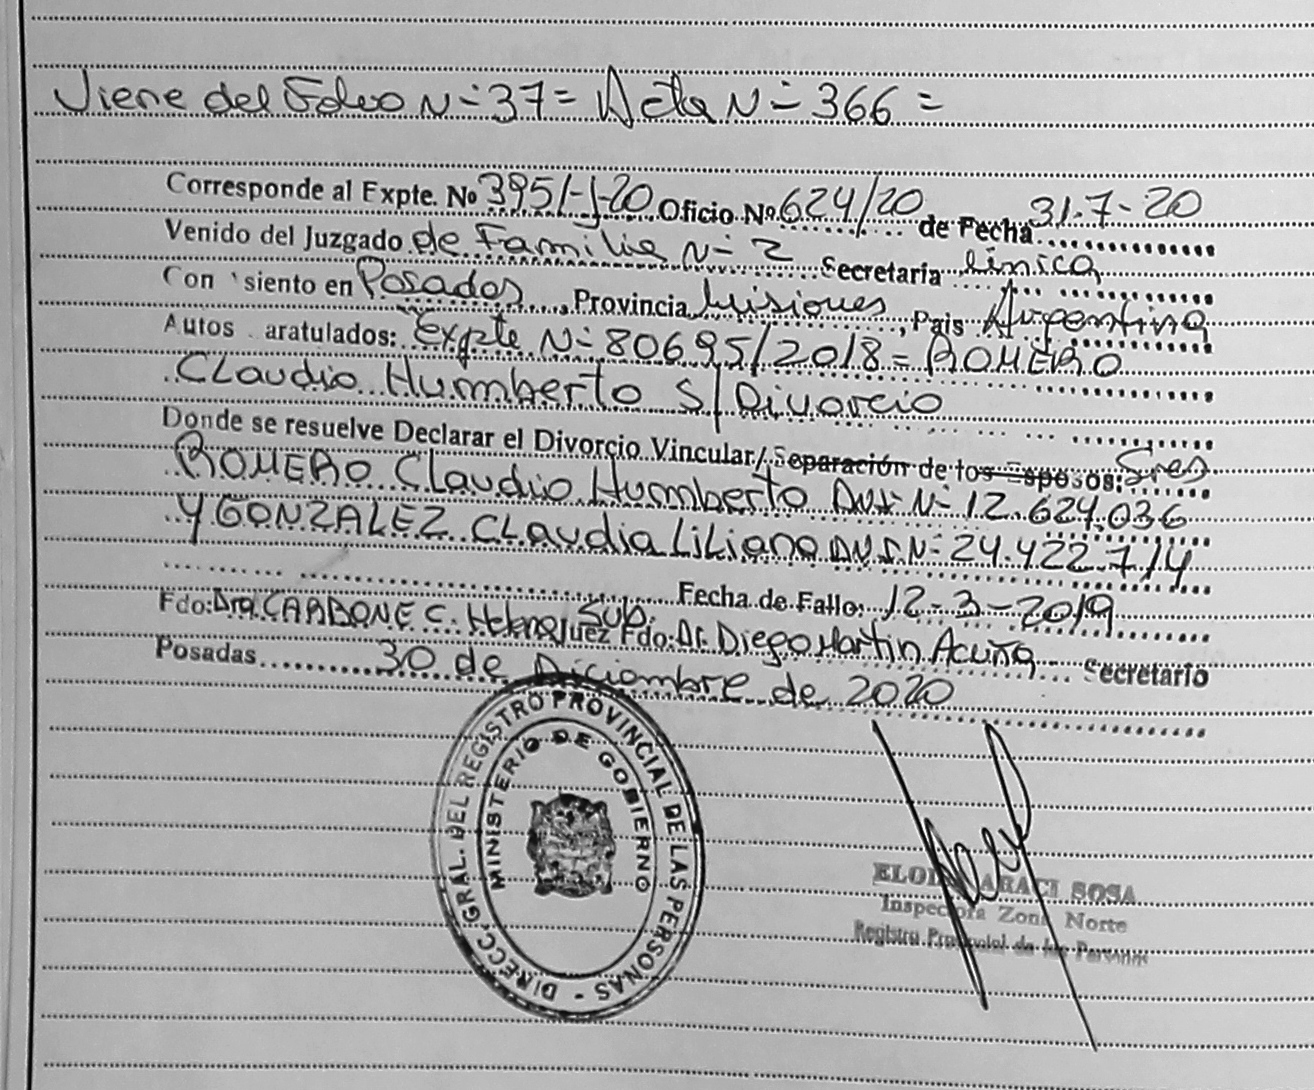 Viene del Folio N=37= Acta N= 366 =
Corresponde al Expte. No 3951-J-20 Oficio Nº 624/20 de Fecha 31-7-20
Venido del Juzgado de Familia N= 2 Secretaria única
Con siento en Posadas, Provincia Misiones, Pais Argentina
Autos aratulados: Expte N= 80695/2018= ROMERO
Claudio Humberto S/Divorcio
Donde se resuelve Declarar el Divorcio Vincular/Separación de los Esposos: Sres
ROMERO Claudio Humberto DNI N= 12.624.036
Y GONZALEZ Claudia Liliana DNI N= 24.422.714
Fecha de Fallo: 12-3-2019
Fdo: Dra. CARBONE C. Helena Juez Sub. Fdo: Dr. Diego Martin Acuña Secretario
Posadas 30 de Diciembre de 2020
DIRECC. GRAL. DEL REGISTRO PROVINCIAL DE LAS PERSONAS -
MINISTERIO DE GOBIERNO
ARACI SOSA
Inspectora Zona Norte
Registro Provincial de las Personas